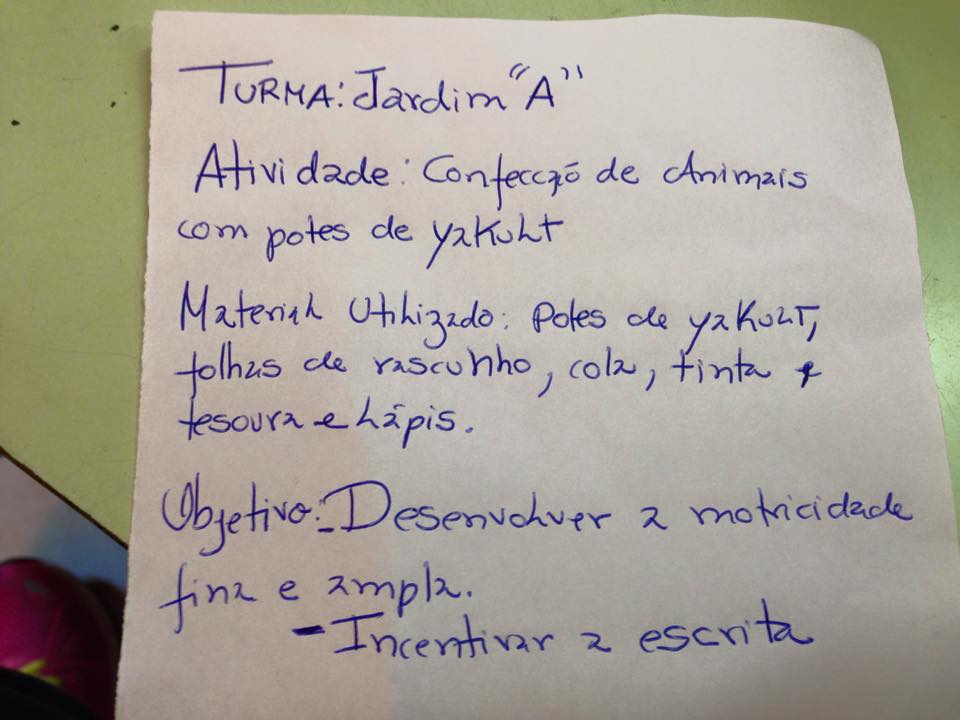 TURMA: Jardim "A"
Atividade: Confecção de Animais
com potes de yakult
Material Utilizado: potes de yakult,
folhas de rascunho, cola, tinta e
tesoura e lápis.
Objetivo: - Desenvolver a motricidade
fina e ampla.
- Incentivar a escrita